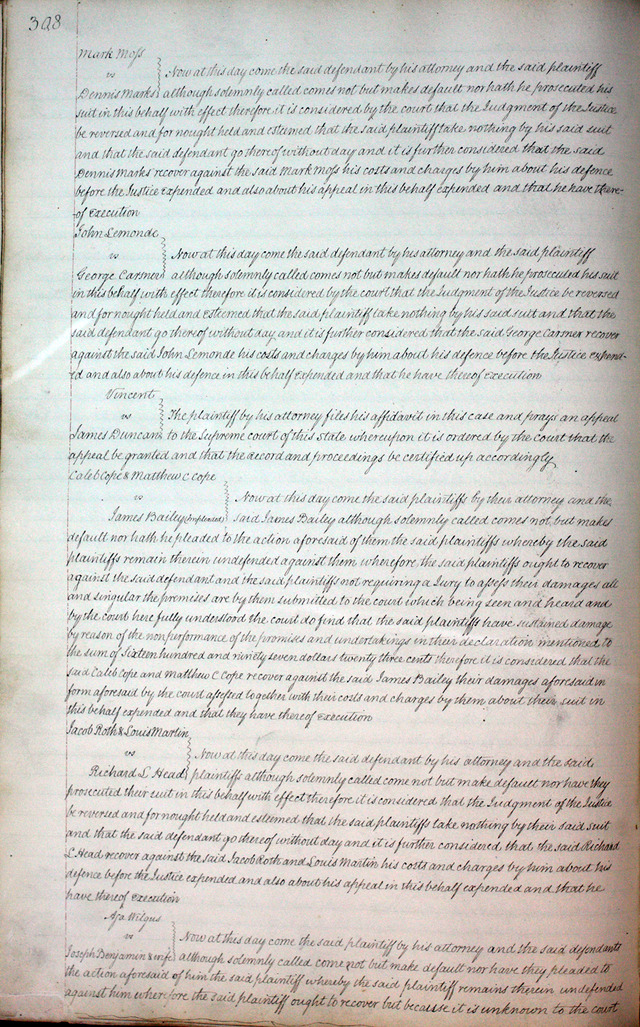 308
Mark Moss
vs Now at this day come the said defendant by his attorney and the said plaintiff
Dennis Marks although solemnly called comes not but makes default nor hath he prosecuted his
suit in this behalf with effect therefore it is considered by the court that the Judgment of the Justice
be reversed and for nought held and esteemed that the said plaintiff take nothing by his said suit
and that the said defendant go thereof without day and it is further considered that the said
Dennis Marks recover against the said Mark Moss his costs and charges by him about his defence
before the Justice expended and also about his appeal in this behalf expended and that he have there-
of execution
John Lemonde
vs Now at this day come the said defendant by his attorney and the said plaintiff
George Carsner although solemnly called comes not but makes default nor hath he prosecuted his suit
in this behalf with effect therefore it is considered by the court that the Judgment of the Justice be reversed
and for nought held and esteemed that the said plaintiff take nothing by his said suit and that the
said defendant go thereof without day and it is further considered that the said George Carsner recover
against the said John Lemonde his costs and charges by him about his defence before the Justice expend-
ed and also about his defence in this behalf expended and that he have thereof execution
Vincent
vs The plaintiff by his attorney files his affidavit in this case and prays an appeal
James Duncan to the Supreme court of this State whereupon it is ordered by the court that the
appeal be granted and that the record and proceedings be certified up accordingly
Caleb Cope & Matthew C Cope
vs Now at this day come the said plaintiffs by their attorney and the
James Bailey (Impleaded) said James Bailey although solemnly called comes not but makes
default nor hath he pleaded to the action aforesaid of them the said plaintiffs whereby the said
plaintiffs remain therein undefended against them wherefore the said plaintiffs ought to recover
against the said defendant and the said plaintiffs not requiring a Jury to assess their damages all
and singular the premises are by them submitted to the court which being seen and heard and
by the court here fully understood the court do find that the said plaintiffs have sustained damage
by reason of the nonperformance of the promises and undertakings in their declaration mentioned to
the sum of Sixteen hundred and ninety seven dollars twenty three cents therefore it is considered that the
said Caleb Cope and Matthew C Cope recover against the said James Bailey their damages aforesaid in
form aforesaid by the court assessed together with their costs and charges by them about their suit in
this behalf expended and that they have thereof execution
Jacob Roth & Louis Martin
vs Now at this day come the said defendant by his attorney and the said
Richard L Head plaintiffs although solemnly called come not but make default nor have they
prosecuted their suit in this behalf with effect therefore it is considered that the Judgment of the Justice
be reversed and for nought held and esteemed that the said plaintiffs take nothing by their said suit
and that the said defendant go thereof without day and it is further considered that the said Richard
L Head recover against the said Jacob Roth and Louis Martin his costs and charges by him about his
defence before the Justice expended and also about his appeal in this behalf expended and that he
have thereof execution
Asa Wilgus
vs Now at this day come the said plaintiff by his attorney and the said defendants
Joseph Benjamin & wife although solemnly called come not but make default nor have they pleaded to
the action aforesaid of him the said plaintiff whereby the said plaintiff remains therein undefended
against him wherefore the said plaintiff ought to recover but because it is unknown to the court